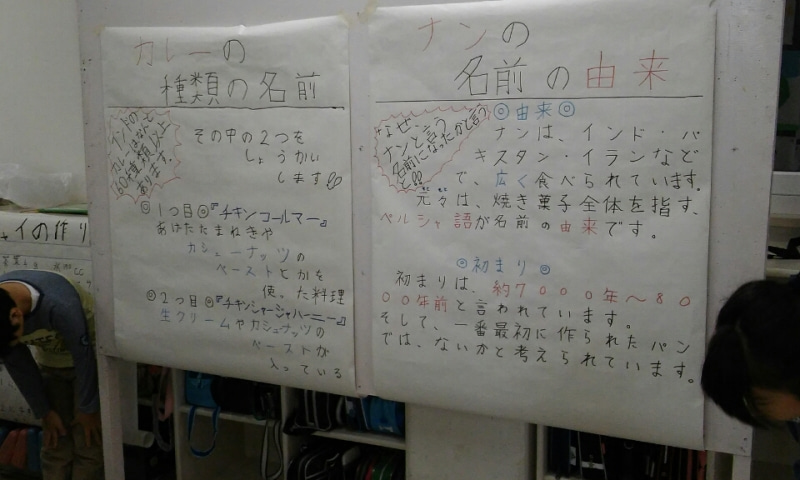 カレーの
種類の名前
インドの
カレーはなんと
60種類以上
あります。
その中の2つを
しょうかい
します!!
◎1つ目◎『チキンコールマー』
あげたたまねぎや
カシューナッツの
ペーストとかを
使った料理
◎2つ目◎『チキンシャージャハーニー』
生クリームやカシュナッツの
ペーストが
入っている
ナンの
名前の由来
なぜ、
ナンと言う
名前になったかと言う
と!!
◎由来◎
ナンは、インド・パ
キスタン・イランなど
で、広く食べられています。
元々は、焼き菓子全体を指す、
ペルシャ語が名前の由来です。
◎初まり◎
初まりは、約7000年～80
00年前と言われています。
そして、一番最初に作られたパン
では、ないかと考えられています。
イの作り